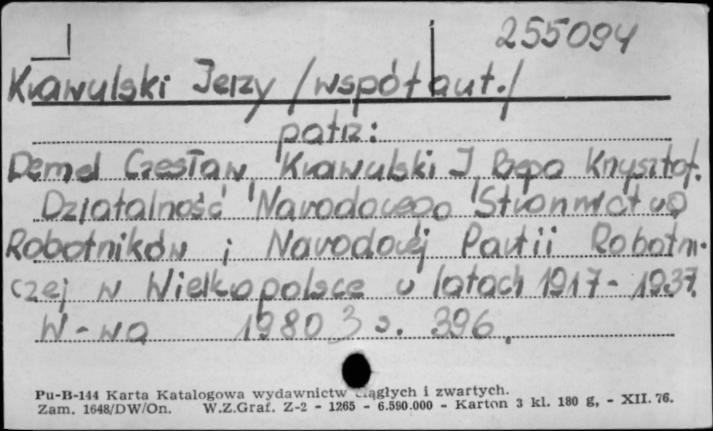 255094
Krawulski Jerzy /współaut./
patrz:
Demel Czesław, Krawulski J, Rzepa Krzysztof.
Działalność Narodowego Stronnictwa
Robotników i Narodowej Partii Robotni-
czej w Wielkopolsce w latach 1917 - 1937.
W-wa 1980 s. 396.
Pu-B-144 Karta Katalogowa wydawnictw ciągłych i zwartych.
Zam. 1648/DW/On. W.Z.Graf. Z-2 - 1265 - 6.590.000 - Karton 3 kl. 180 g, - XII. 76.